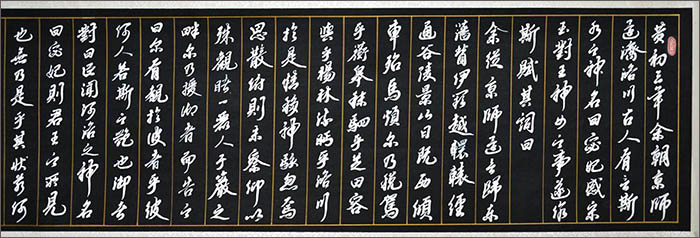 黄初三年余朝京师
還濟洛川古人有言斯
水之神名曰宓妃感宋
玉對王神女之事遂作
斯賦其詞曰
余從京師言歸東
藩背伊闕越轘轅經
通谷陵景山日既西傾
車殆馬煩尔乃税駕
乎蘅皋秣駟乎芝田容
與乎楊林流眄乎洛川
於是精移神駭忽焉
思散俯則未察仰以
殊觀睹一麗人于巖之
畔尔乃援御者而告之
曰尔有覿於彼者乎彼
何人若斯之艷也御者
對曰臣聞河洛之神名
曰宓妃則君王之所見
也無乃是乎其狀若何